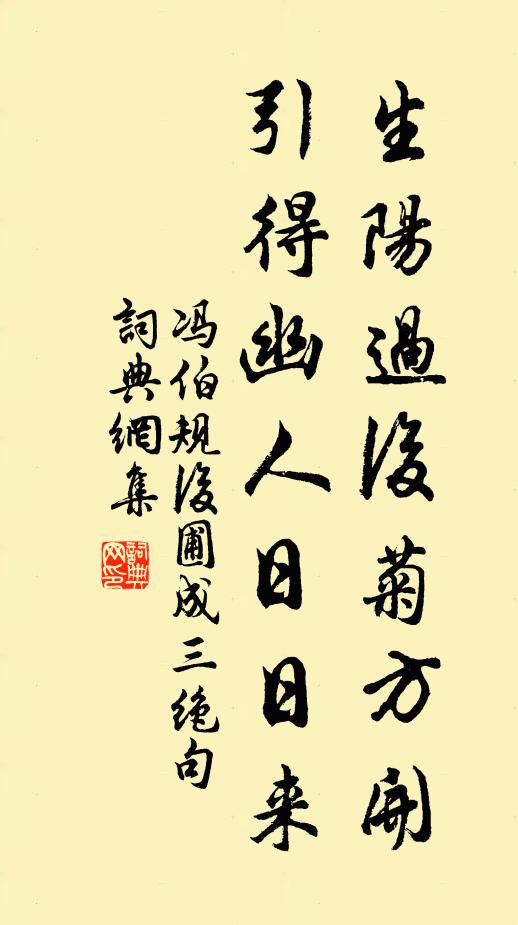 生陽過後菊方開
引得幽人日日来
冯伯规後圃成三绝句
詞典網集
詞典網印